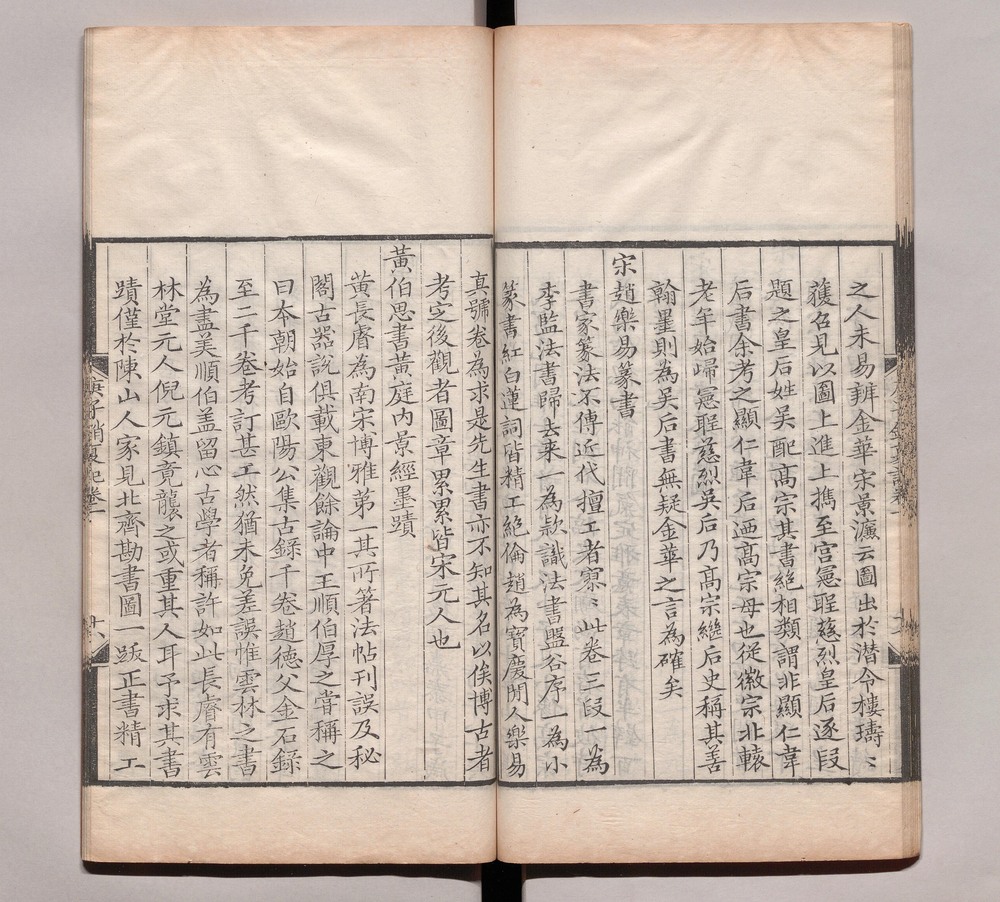 之人未易辨金華宋景濂云圖出於潛令樓璹璹
獲召見以圖上進上攜至宮憲聖慈烈皇后逐段
題之皇后姓吳配髙宗其書絕相類謂非顯仁韋
后書余考之顯仁韋后廼髙宗母也從徽宗北轅
老年始歸憲聖慈烈吳后乃髙宗繼后史稱其善
翰墨則為吳后書無疑金華之言為確矣
宋趙樂易篆書
書家篆法不傳近代擅工者寥寥此卷三段一為
李監法書歸去來一為欵識法書盤谷序一為小
篆書紅白蓮詞皆精工絕倫趙為寶慶閒人樂易
真號卷為求是先生書亦不知其名以俟博古者
考定後觀者圖章累累皆宋元人也
黃伯思書黃庭内景經墨蹟
黃長睿為南宋博雅第一其所著法帖刊誤及秘
閣古器說俱載東觀餘論中王順伯厚之嘗稱之
曰本朝始自歐陽公集古録千卷趙德父金石録
至二千卷考訂甚工然猶未免差誤惟雲林之書
為盡美順伯盖留心古學者稱許如此長睿有雲
林堂元人倪元鎮竟襲之或重其人耳予求其書
蹟僅於陳山人家見北齊勘書圖一跋正書精工
庚子銷夏記卷一